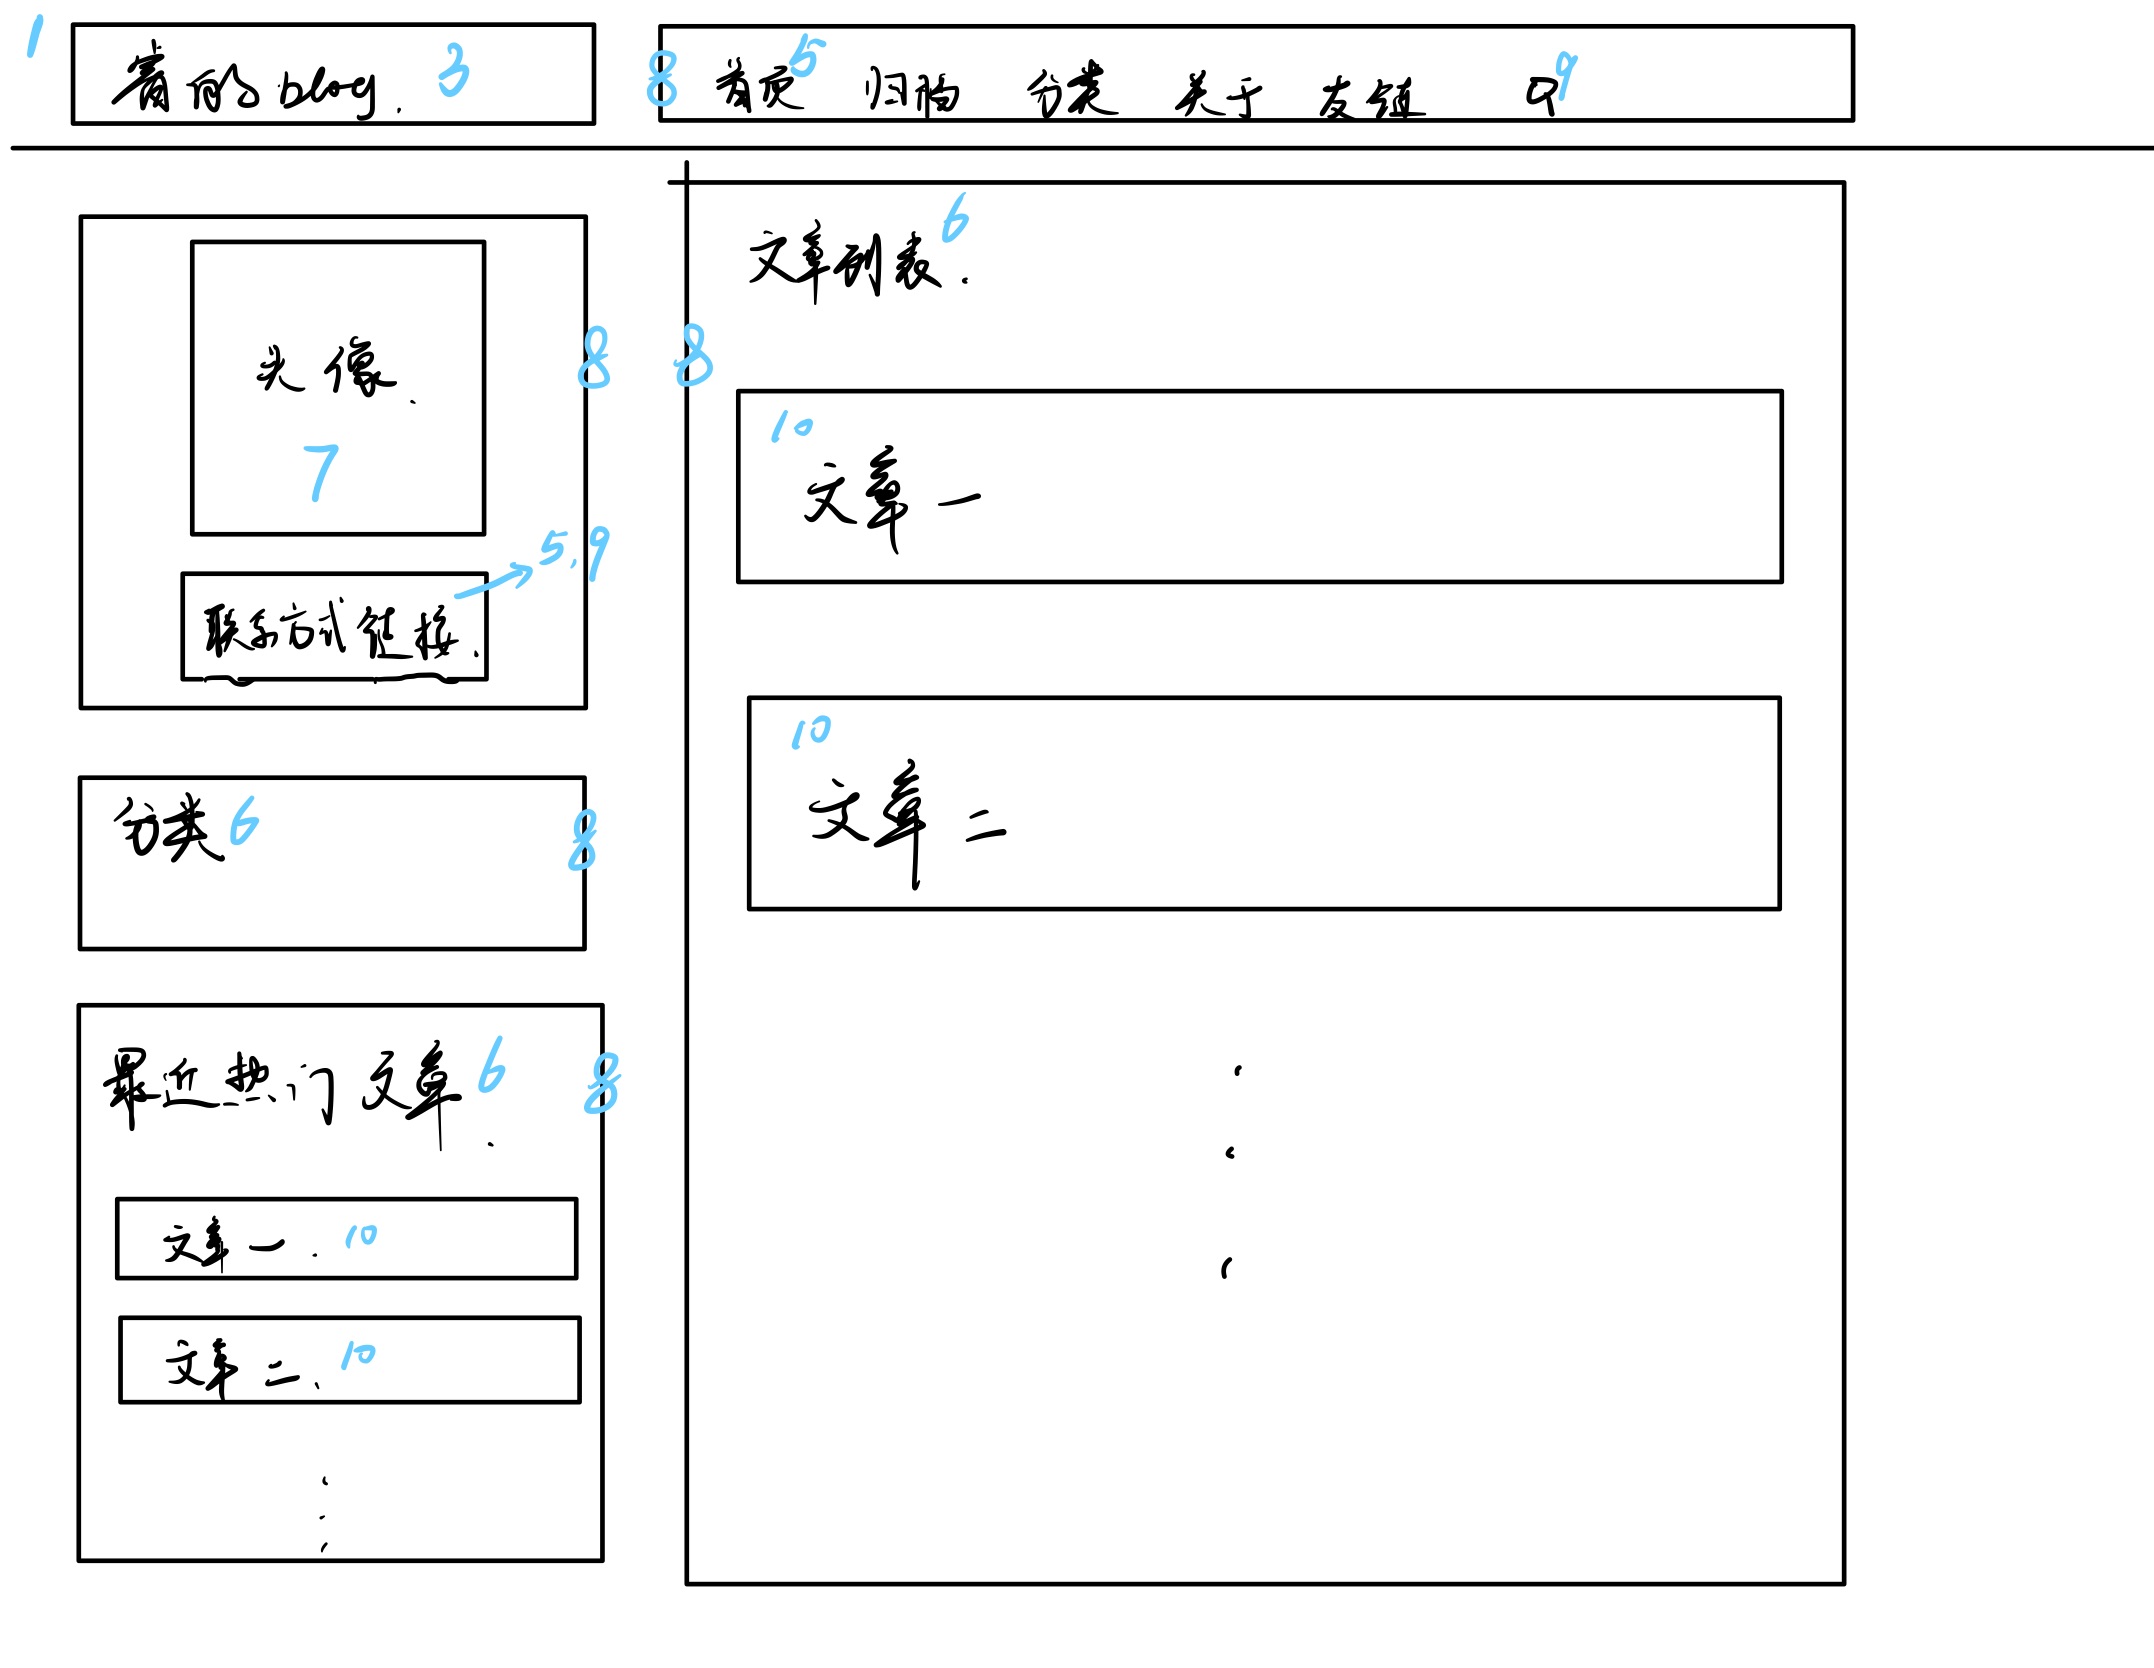 1
的blog. 3
8 首页 5 归档 分类 关于 友链 9
头像.
7
8
联系方式链接.
5,9
分类 6
8
最近热门文章 6
8
.
文章一. 10
文章二. 10
文章列表. 6
8
10
文章一
10
文章二